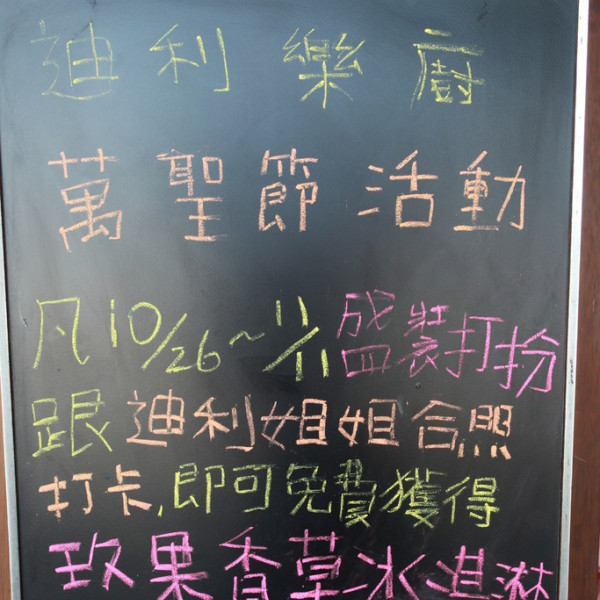 迪利樂廚
萬聖節活動
凡10/26~11/1盛裝打扮
跟迪利姐姐合照
打卡,即可免費獲得
玫果香草冰淇淋